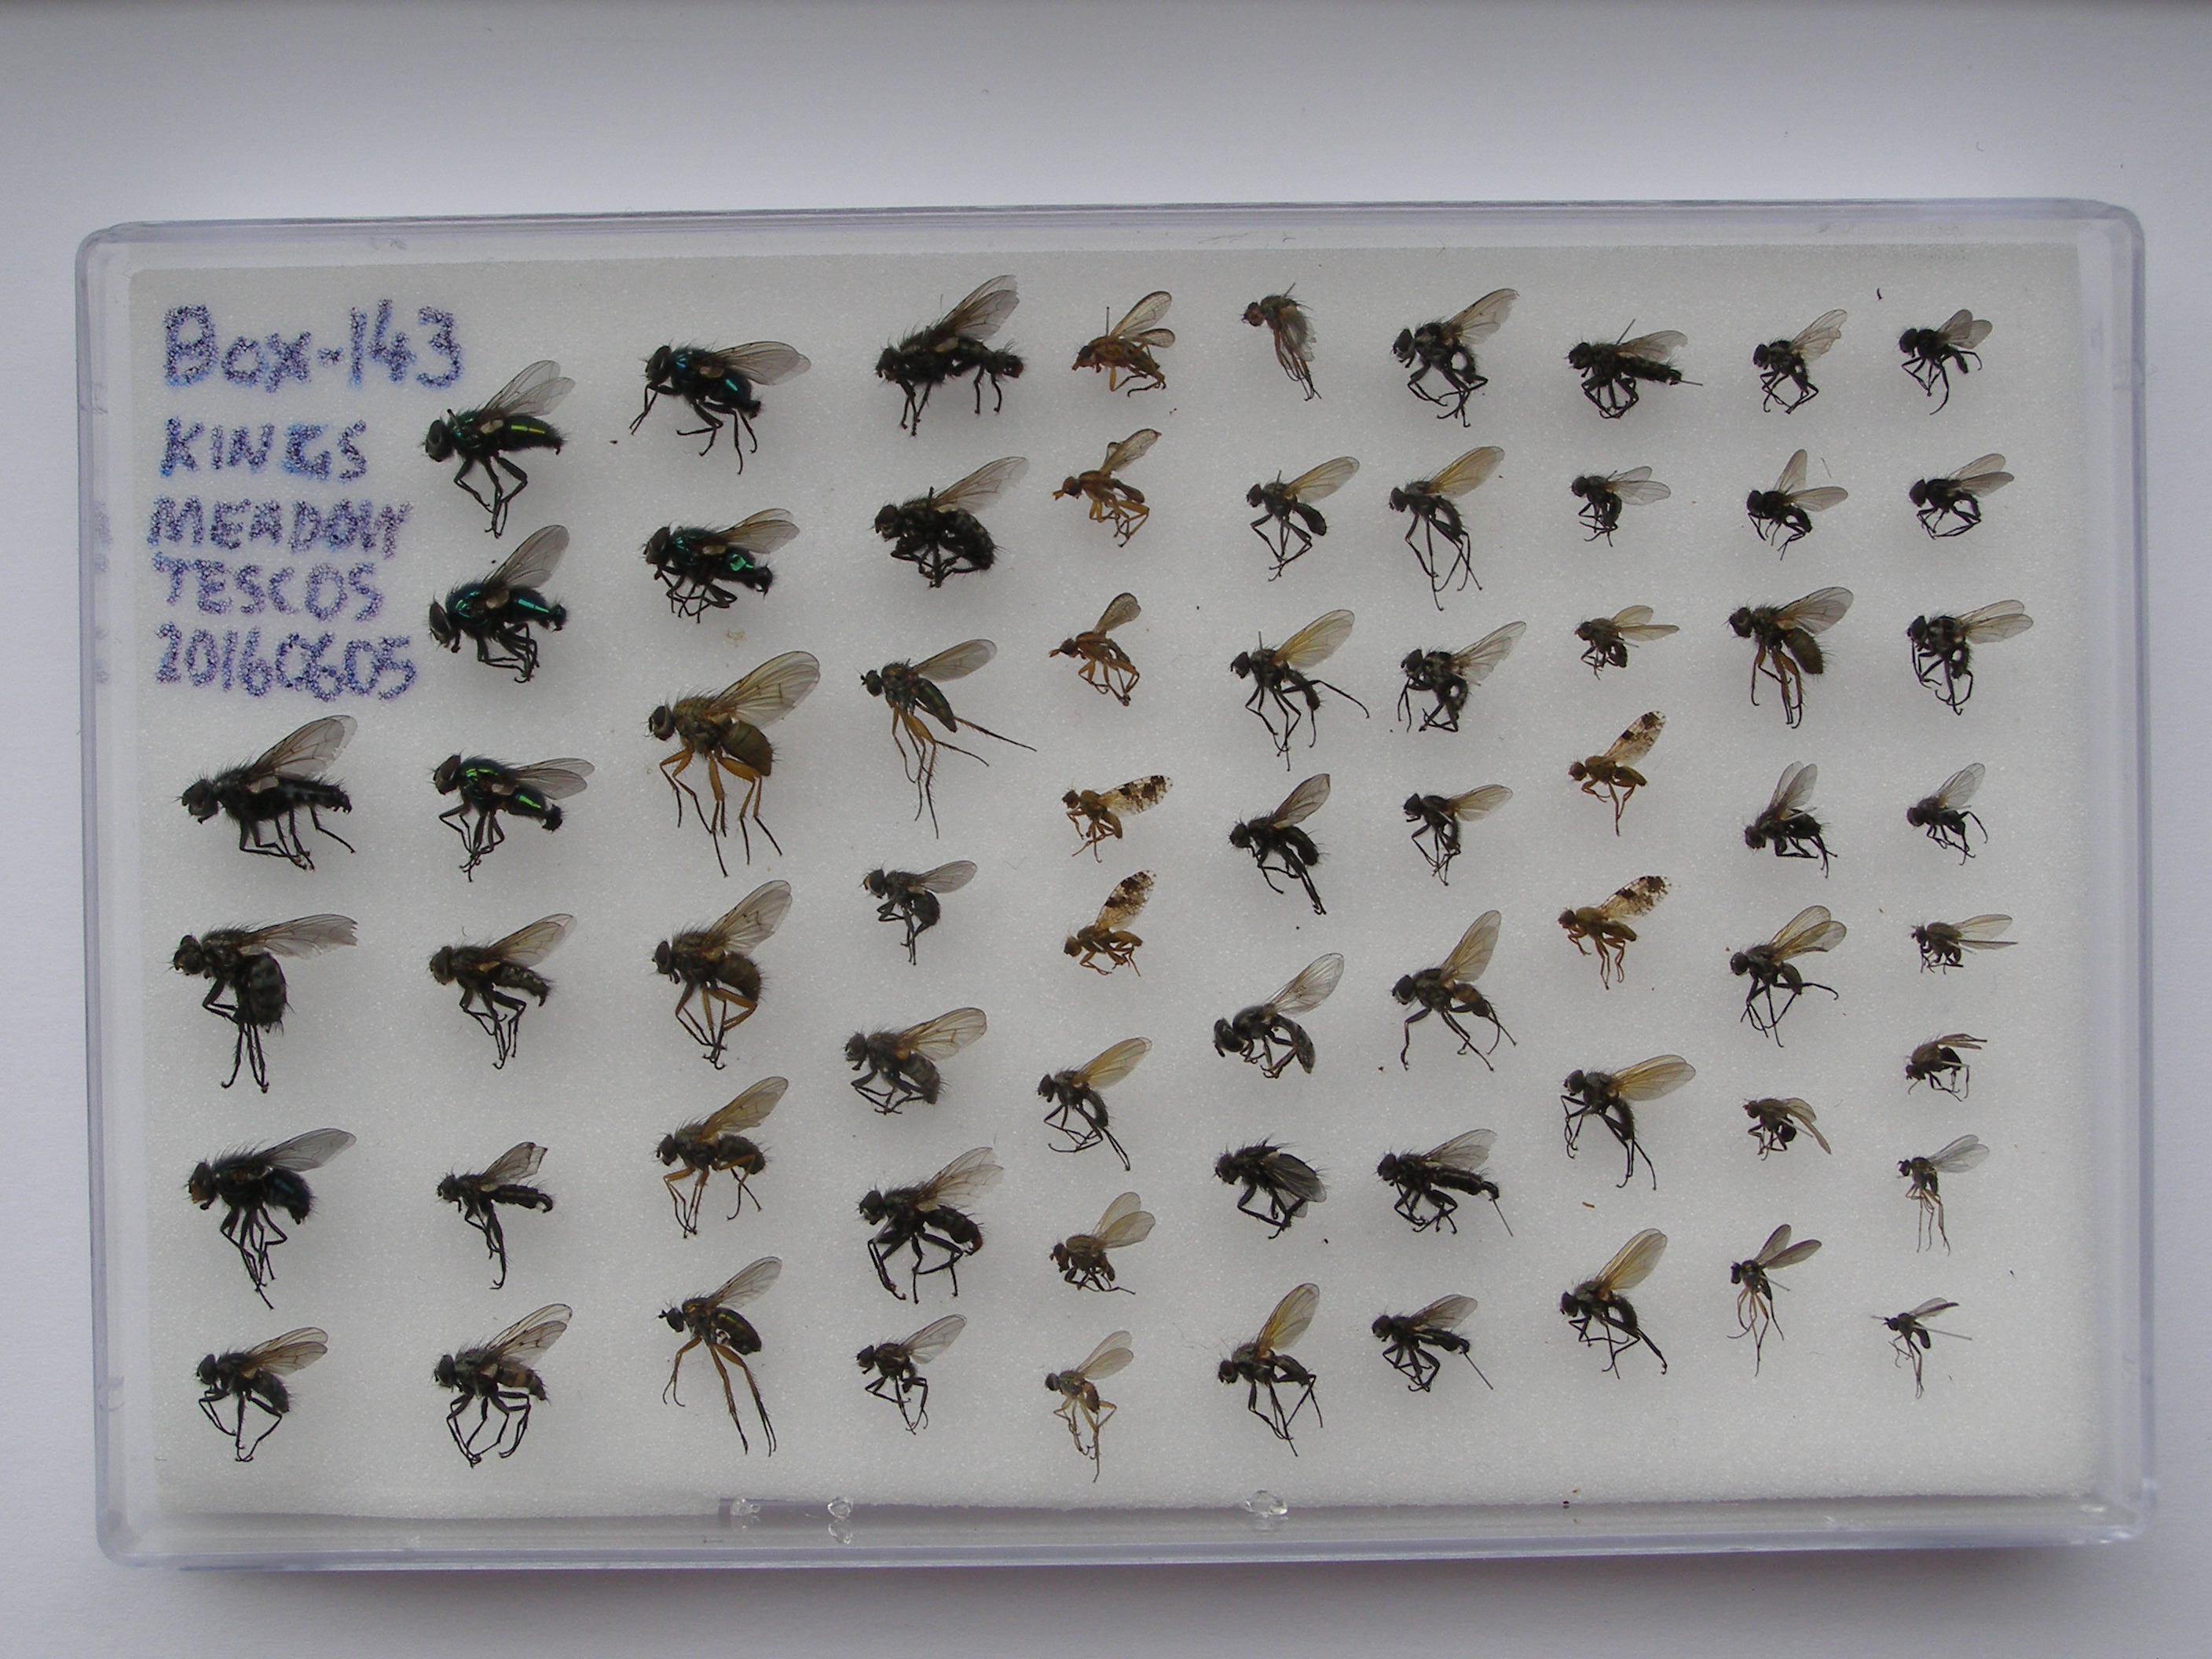 Box-143
KINGS
MEADOW
TESCOS
20160605